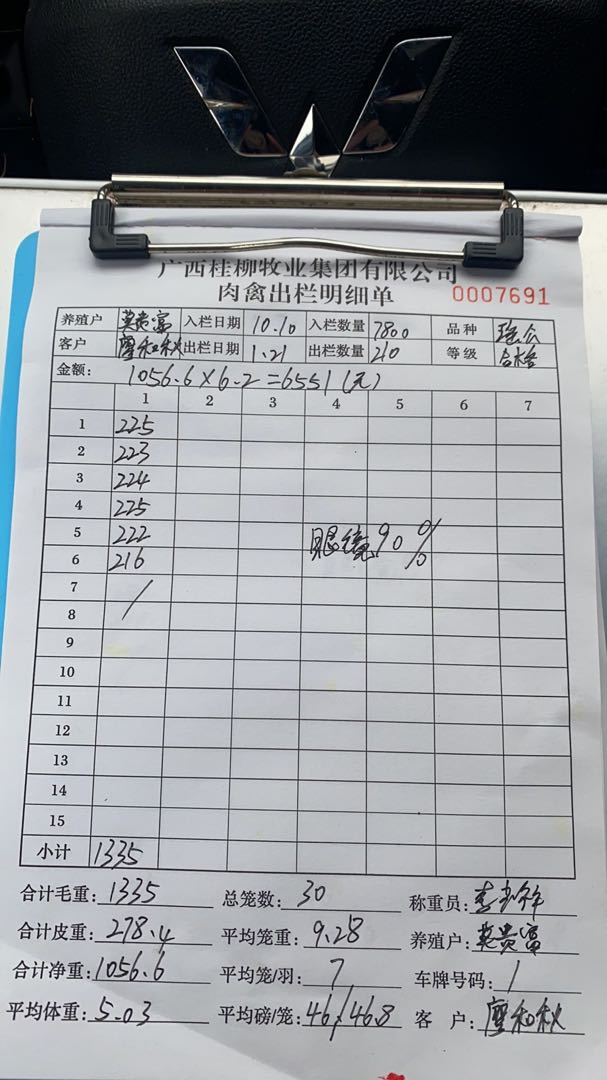 广西桂柳牧业集团有限公司
肉禽出栏明细单 0007691
养殖户 莫贵富 入栏日期 10.10 入栏数量 7800 品种
客户 廖和秋 出栏日期 1.21 出栏数量 210 等级 合格
金额: 1056.6×6.2=6551(元)
1 2 3 4 5 6 7
1 225
2 223
3 224
4 225
5 222 眼镜90%
6 216
7 /
8
9
10
11
12
13
14
15
小计 1335
合计毛重: 1335 总笼数: 30 称重员:
合计皮重: 278.4 平均笼重: 9.28 养殖户: 莫贵富
合计净重: 1056.6 平均笼/羽: 7 车牌号码: /
平均体重: 5.03 平均磅/笼: 46.8 客 户: 廖和秋